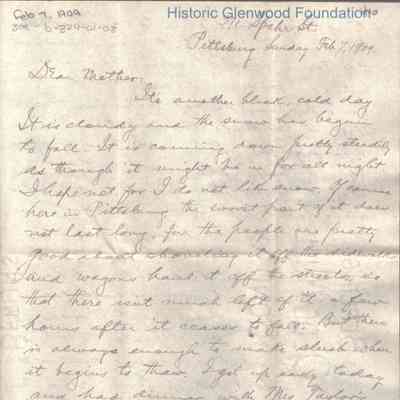 Feb 7, 1909
Historic Glenwood Foundation
St.
Pittsburg Sunday Feb 7, 1909.
Dear Mother:
Its another bleak, cold day
It is cloudy and the snow has begun
to fall. It is coming down pretty steadily
as though it might be in for all night
I hope not for I do not like snow. Of course
here in Pittsburg the worst part of it does
not last long, for the people are pretty
good about shoveling it off the sidewalks
and wagons haul it off the streets, so
that there isnt much left of it a few
hours after it ceases to fall. But there
is always enough to make slush when
it begins to thaw. I got up early today
and had dinner with Mrs. Taylor's